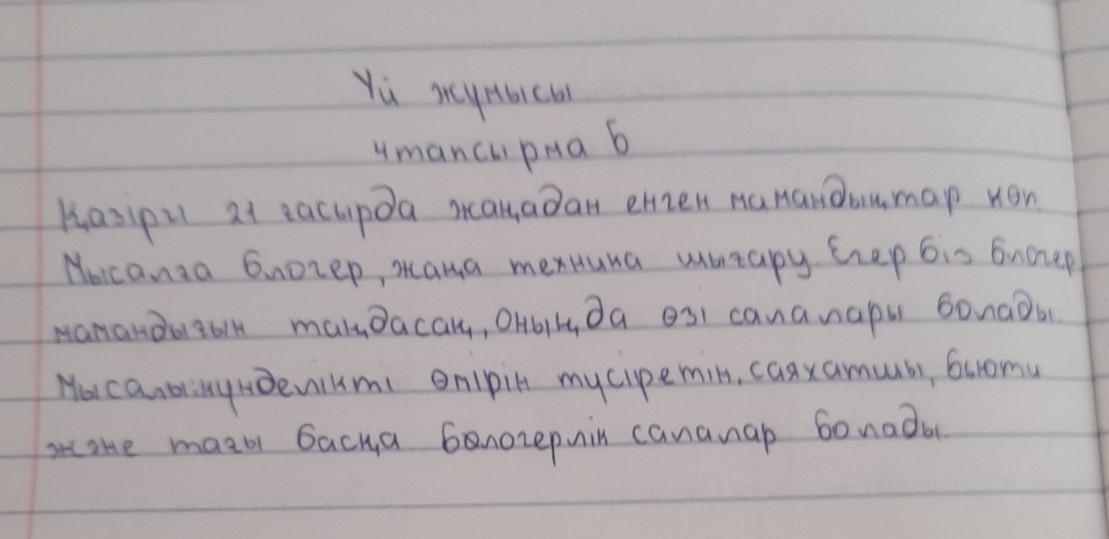 Үй жұмысы
4тапсырма б
Қазіргі 21 ғасырда жаңадан енген мамандықтар көп.
Мысалға блогер, жаңа техника шығару Егер біз блогер
мамандығын таңдасақ, Оның да өзі салалары болады.
Мысалы:күнделікті өпірін түсіретін, саяхатшы, бьюти
және тағы басқа бөлогерлік салалар болады.